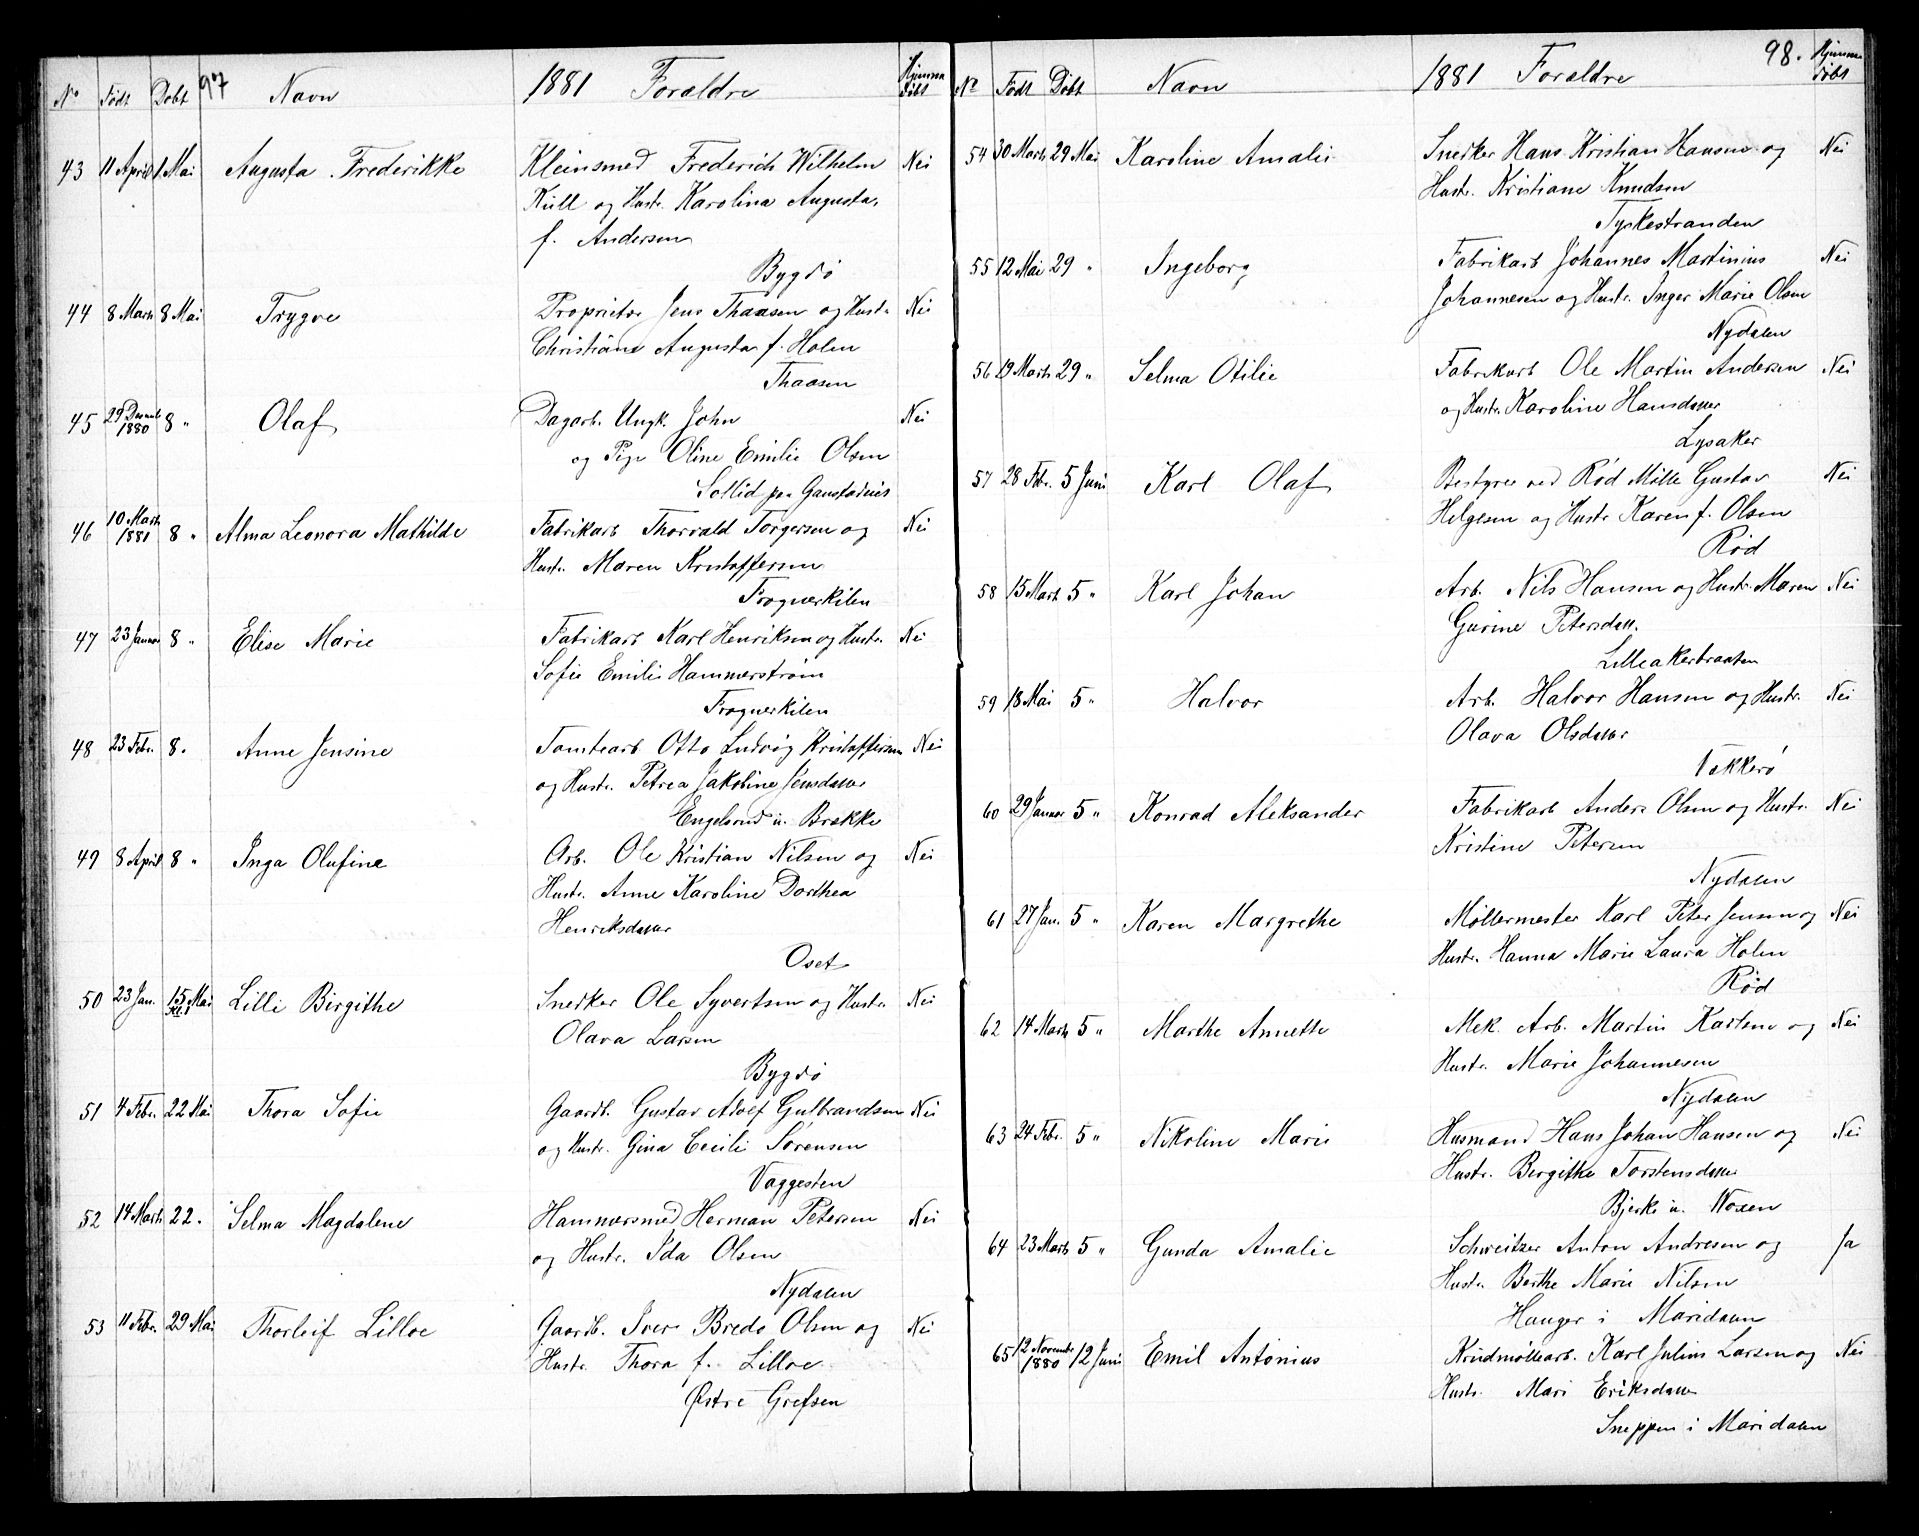 97
No Født Døbt Navn 1881 Forældre Hjemmedøbt
43 11 April 1 Mai Augusta Frederikke Kleinsmed Frederich Wilhelm Nei
Kull og Hustr. Karolina Augusta,
f. Andersen
Bygdø
44 8 Marts 8 Mai Trygve Proprietær Jens Thaasen og Hustr. Nei
Christiane Augusta f. Holm
Thaasen
45 29 Decemb 1880 8 " Olaf Dagarb. Ungk. John Nei
og Pige Oline Emilie Olsen
Sollid paa Gaustadeies
46 10 Marts 1881 8 " Alma Leonora Mathilde Fabrikarb Thorvald Torgersen og Nei
Hustr. Maren Kristoffersen
Frognerkilen
47 23 Januar 8 " Elise Marie Fabrikarb Karl Henriksen og Hustr. Nei
Sofie Emilie Hammerstrøm
Frognerkilen
48 23 Febr. 8 " Anne Jensine Tomtearb Otto Ludvig Kristoffersen Nei
og Hustr. Petrea Jakobine Jensdatter
Engelsrud u. Brække
49 8 April 8 " Inga Olufine Arb. Ole Kristian Nilsen og Nei
Hustr. Anne Karoline Dorthea
Henriksdatter
Oset
50 23 Jan. 15 Mai Lilli Birgithe Snedker Ole Syvertsen og Hustr. Nei
Olava Larsen
Bygdø
51 4 Febr. 22 Mai Thora Sofie Gaardb. Gustav Adolf Gulbrandsen Nei
og Hustr. Gina Cecilie Sørensen
Vaggesten
52 14 Marts 22 " Selma Magdalene Hammersmed Herman Petersen Nei
og Hustr. Ida Olsen
Nydalen
53 11 Febr. 29 Mai Thorleif Lilloe Gaardb. Iver Bredo Olsen og Nei
Hustr. Thora f. Lilloe
Østre Grefsen
98.
No Født Døbt Navn 1881 Forældre Hjemmedøbt
54 30 Marts 29 Mai Karoline Amalie Snedker Hans Kristian Hansen og Nei
Hustr. Kristiane Knudsen
Tyskestranden
55 12 Mai 29 " Ingeborg Fabrikarb Johannes Martinius Nei
Johannesen og Hustr. Inger Marie Olsen
Nydalen
56 19 Marts 29 " Selma Otilie Fabrikarb Ole Martin Andersen Nei
og Hustr. Karoline Hansdatter
Lysaker
57 28 Febr. 5 Juni Karl Olaf Bestyrer ved Rød Mølle Gustav Nei
Helgesen og Hustr Karen f. Olsen
Rød
58 15 Marts 5 " Karl Johan Arb. Nils Hansen og Hustr. Maren Nei
Gurine Petersdatt.
Lilleakerbraaten
59 18 Mai 5 " Halvor Arb. Halvor Hansen og Hustr. Nei
Olava Olsdatter
Vækkerø
60 29 Januar 5 " Konrad Aleksander Fabrikarb Anders Olsen og Hustr. Nei
Kristine Petersen
Nydalen
61 27 Jan. 5 " Karen Margrethe Møllermester Karl Peter Jensen og Nei
Hustr. Hanna Marie Laura Holm
Rød
62 14 Marts 5 " Marthe Annette Mek. Arb. Martin Karlsen og Nei
Hustr. Marie Johannesen
Nydalen
63 24 Febr. 5 " Nikoline Marie Husmand Hans Johan Hansen og Nei
Hustr. Birgitke Torstensdatter
Bjerke u. Voxen
64 23 Marts 5 " Gunda Amalie Schweitzer Anton Andresen og Ja
Hustr. Berthe Marie Nilsen
Hanger i Maridalen
65 12 Novembr 1880 12 Juni Emil Antonius Krudmøllearb. Karl Julius Larsen og Nei
Hustr. Mari Eriksdatter
Sneppen i Maridalen